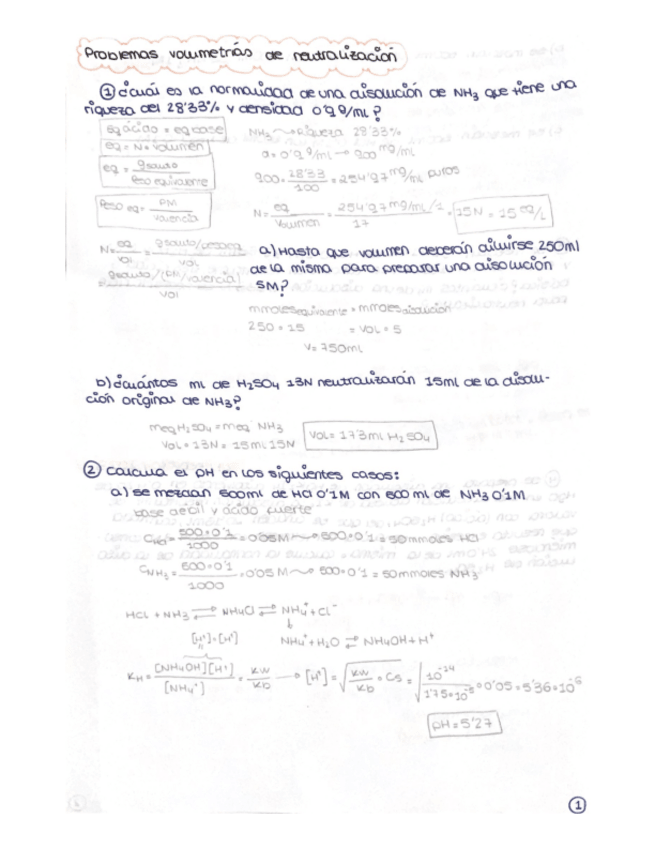 Problemas volumetrías de neutralización
① ¿Cuál es la normalidad de una disolución de NH3 que tiene una
riqueza del 28'33% y densidad 0'9 g/ml?
eq ácido = eq base
NH3 → riqueza 28'33%
eq = N · volumen
d = 0'9 g/ml → 900 mg/ml
eq = g soluto / Peso equivalente
900 · 28'33/100 = 254'97 mg/ml puros
Peso eq = PM / valencia
N = eq / Volumen = 254'97 mg/ml/1 / 17 = 15N = 15 eq/L
N = eq / vol = g soluto/peso eq / vol
= g soluto/(PM/valencia) / vol
a) Hasta que volumen deberán diluirse 250ml
de la misma para preparar una disolución
5M?
mmoles equivalente = mmoles disolución
250 · 15 = vol · 5
V = 750ml
b) ¿Cuántos ml de H2SO4 13N neutralizarán 15ml de la disolu-
ción original de NH3?
meq H2SO4 = meq NH3
Vol · 13N = 15ml 15N
Vol = 17'3ml H2SO4
② Calcula el pH en los siguientes casos:
a) se mezclan 500ml de HCl 0'1M con 500 ml de NH3 0'1M
base débil y ácido fuerte
CHCl = 500·0'1 / 1000 = 0'05M → 500·0'1 = 50mmoles HCl
CNH3 = 500·0'1 / 1000 = 0'05M → 500·0'1 = 50mmoles NH3
HCl + NH3 ⇌ NH4Cl ⇌ NH4+ + Cl-
NH4+ + H2O ⇌ NH4OH + H+
KH = [NH4OH][H+] / [NH4+] = Kw / Kb → [H+] = √(Kw/Kb · Cs) = √(10^-14 / 1'75·10^-5 · 0'05) = 5'36·10^-6
pH = 5'27
①